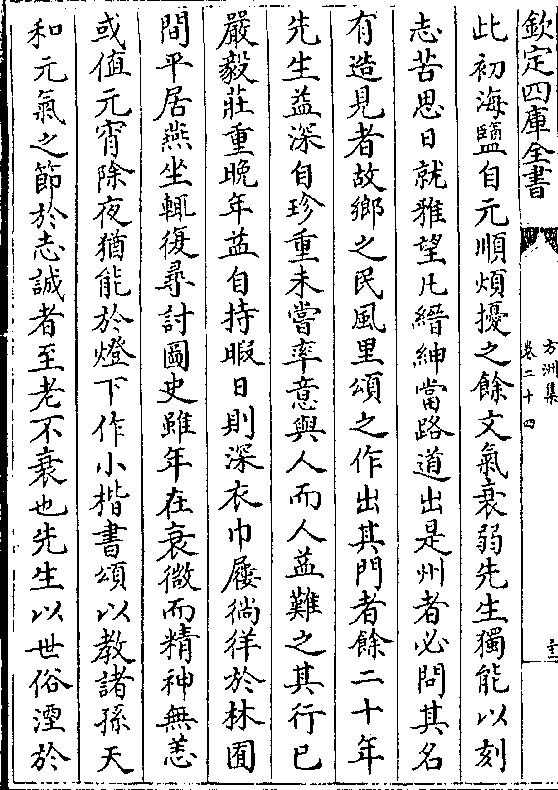 欽定四庫全書
方洲集
卷二十四
此初海鹽自元順煩擾之餘文氣衰弱先生獨能以刻
志苦思日就雅望凡縉紳當路道出是州者必問其名
有造見者故鄉之民風里頌之作出其門者餘二十年
先生益深自珍重未嘗率意與人而人益難之其行已
嚴毅莊重晚年益自持暇日則深衣巾屨徜徉於林囿
間平居燕坐輒復尋討圖史雖年在衰微而精神無恙
或值元宵除夜猶能於燈下作小楷書頌以教諸孫天
和元氣之節於志誠者至老不衰也先生以世俗湮於